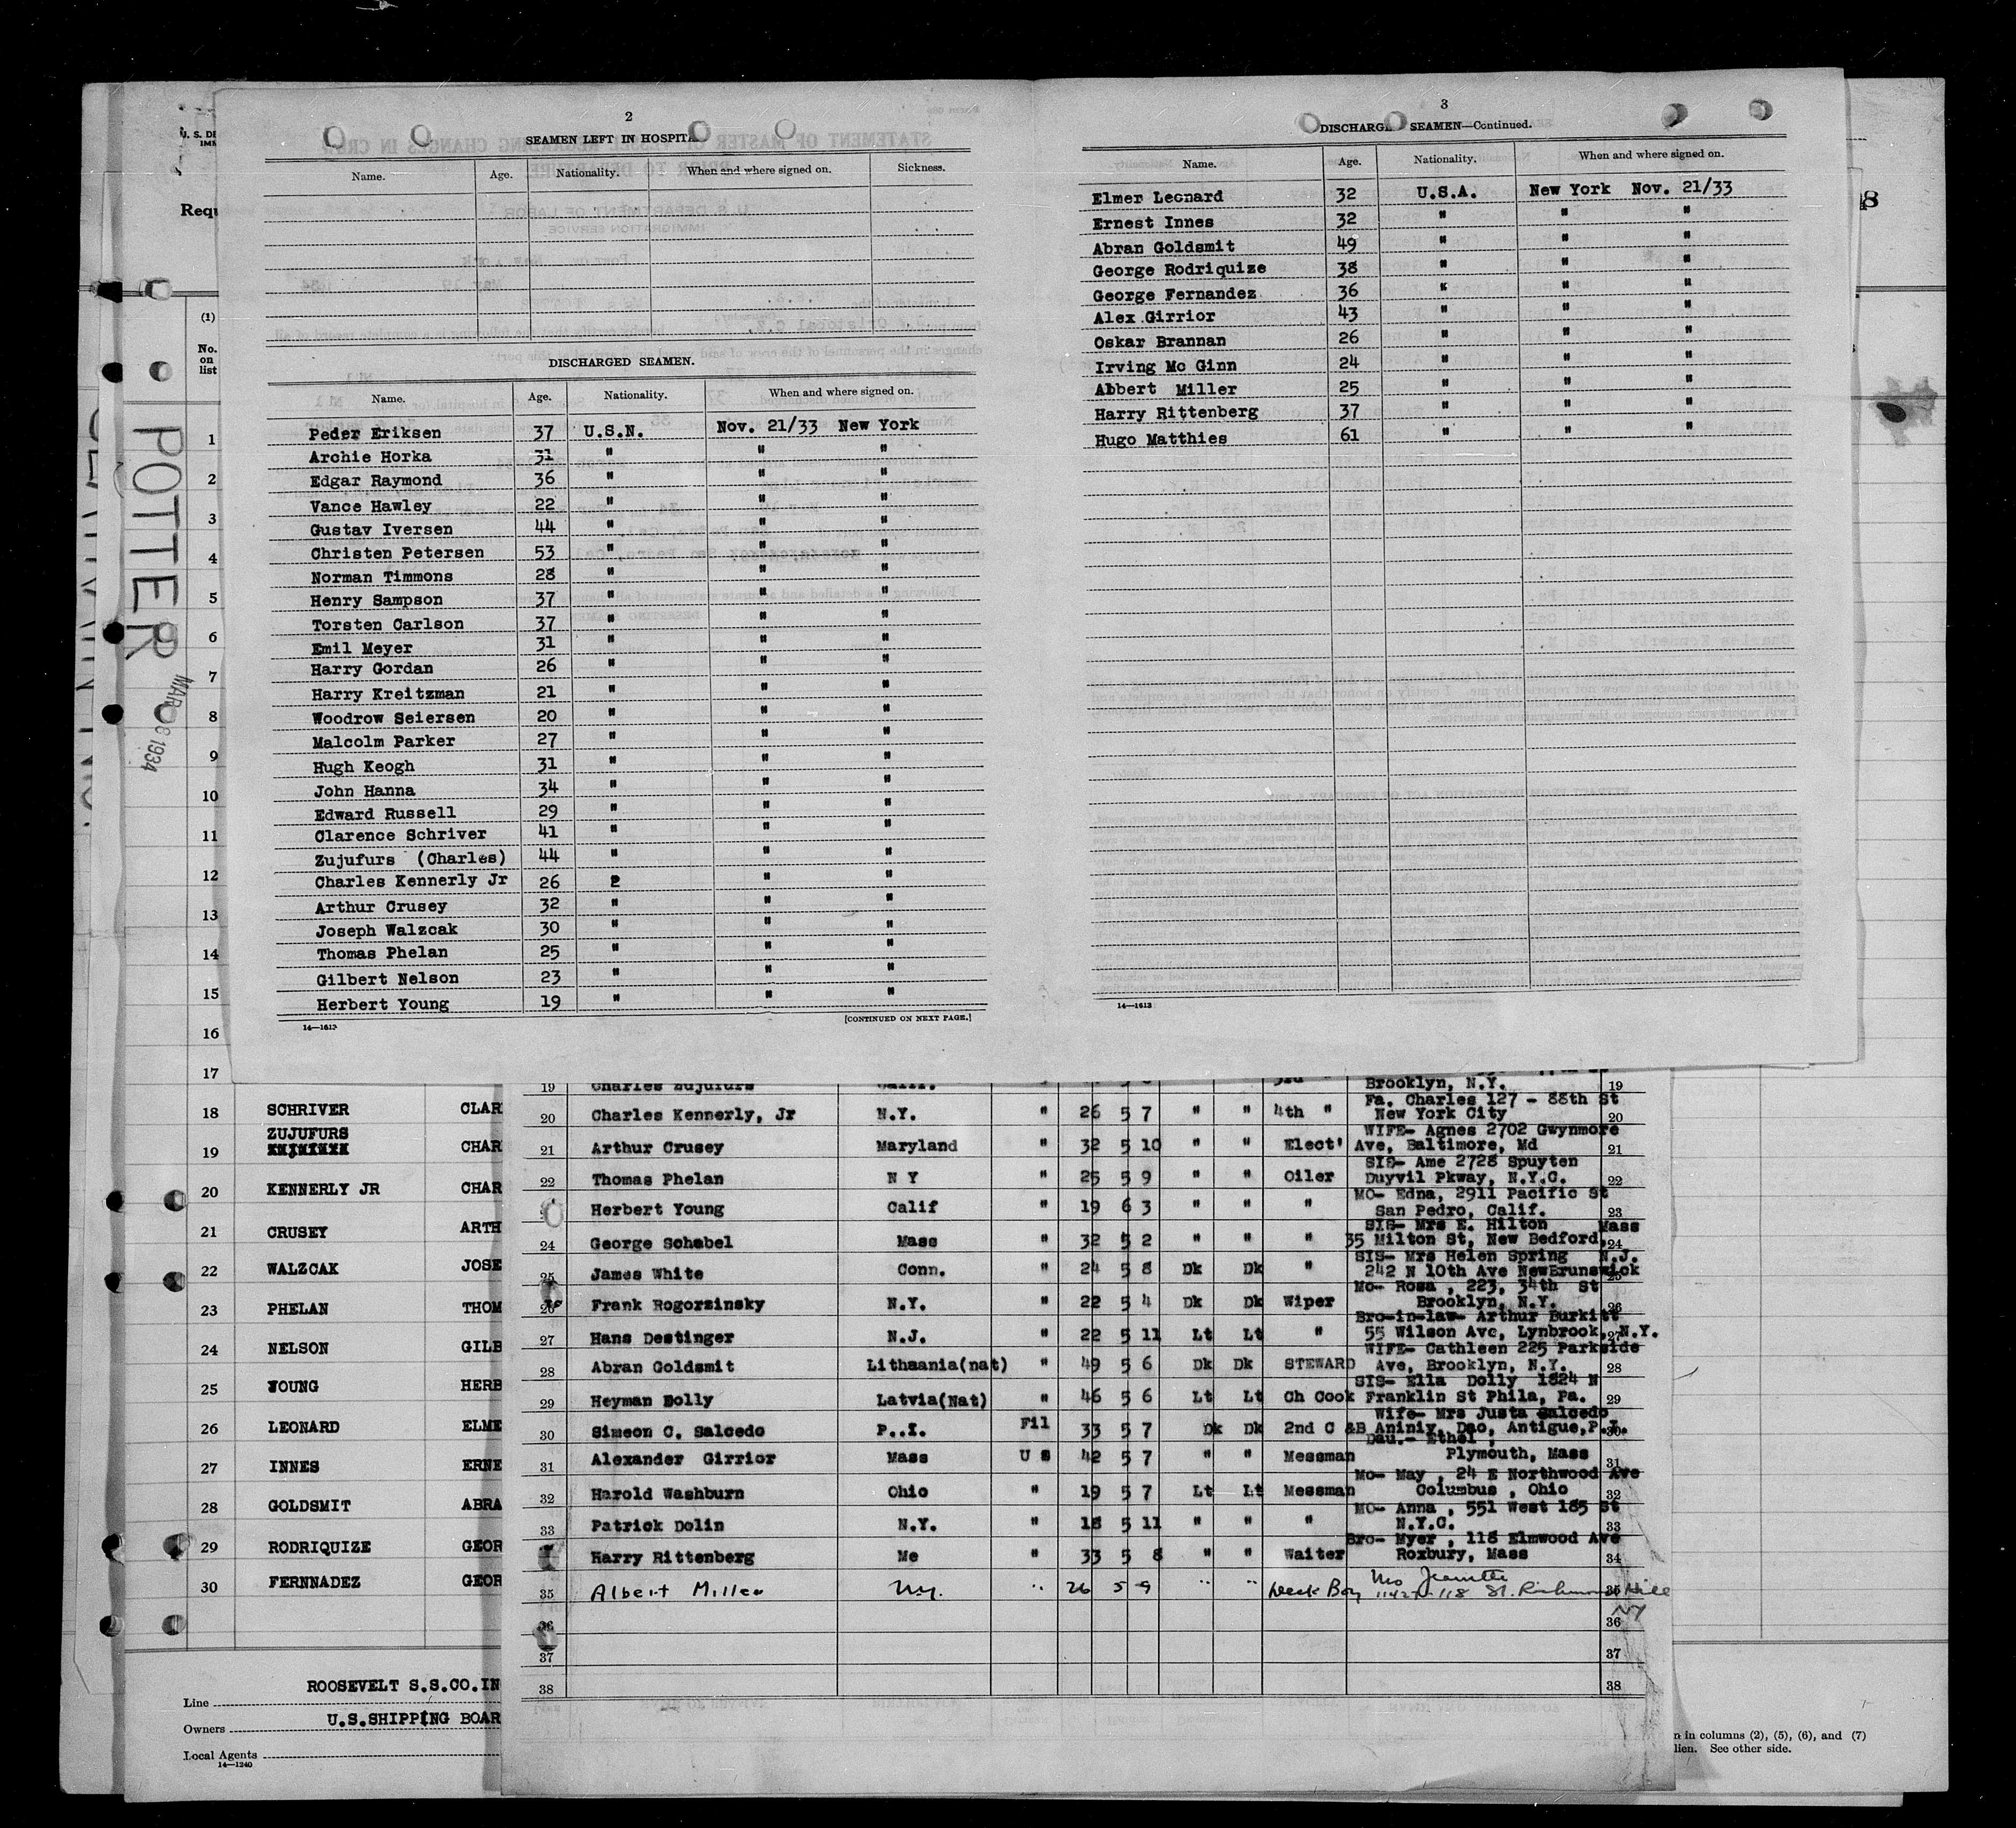 2
SEAMEN LEFT IN HOSPITA
Name. Age. Nationality. When and where signed on. Sickness.
DISCHARGED SEAMEN.
Name. Age. Nationality. When and where signed on.
Peder Eriksen 37 U.S.N. Nov. 21/33 New York
Archie Horka 31 " " "
Edgar Raymond 36 " " "
Vance Hawley 22 " " "
Gustav Iversen 44 " " "
Christen Petersen 53 " " "
Norman Timmons 28 " " "
Henry Sampson 37 " " "
Torsten Carlson 37 " " "
Emil Meyer 31 " " "
Harry Gordan 26 " " "
Harry Kreitzman 21 " " "
Woodrow Seiersen 20 " " "
Malcolm Parker 27 " " "
Hugh Keogh 31 " " "
John Hanna 34 " " "
Edward Russell 29 " " "
Clarence Schriver 41 " " "
Zujufurs (Charles) 44 " " "
Charles Kennerly Jr 26 2 " "
Arthur Crusey 32 " " "
Joseph Walzcak 30 " " "
Thomas Phelan 25 " " "
Gilbert Nelson 23 " " "
Herbert Young 19 " " "
14—1613 [CONTINUED ON NEXT PAGE.]
3
DISCHARG SEAMEN—Continued.
Name. Age. Nationality. When and where signed on.
Elmer Leonard 32 U.S.A. New York Nov. 21/33
Ernest Innes 32 " " "
Abran Goldsmit 49 " " "
George Rodriquize 38 " " "
George Fernandez 36 " " "
Alex Girrior 43 " " "
Oskar Brannan 26 " " "
Irving Mc Ginn 24 " " "
Abbert Miller 25 " " "
Harry Rittenberg 37 " " "
Hugo Matthies 61 " " "
14—1613
U. S. DE
IMM
Requ
(1)
No.
on
list
POTTER
MAR 6 1934
1
2
3
4
5
6
7
8
9
10
11
12
13
14
15
16
17
18 SCHRIVER CLAR
ZUJUFURS
19 CHAR
20 KENNERLY JR CHAR
21 CRUSEY ARTH
22 WALZCAK JOSE
23 PHELAN THOM
24 NELSON GILB
25 YOUNG HERB
26 LEONARD ELME
27 INNES ERNE
28 GOLDSMIT ABRA
29 RODRIQUIZE GEOR
30 FERNNADEZ GEOR
Line ROOSEVELT S.S.CO.IN
Owners U.S.SHIPPING BOAR
Local Agents
14—1240
19 Charles Zujufurs Calif. 3rd " Brooklyn, N.Y. 19
20 Charles Kennerly, Jr N.Y. " 26 5 7 " " 4th " Fa. Charles 127 - 88th St New York City 20
21 Arthur Crusey Maryland " 32 5 10 " " Elect' WIFE- Agnes 2702 Gwynmore Ave, Baltimore, Md 21
22 Thomas Phelan N Y " 25 5 9 " " Oiler SIS- Ame 2728 Spuyten Duyvil Pkway, N.Y.C. 22
Herbert Young Calif " 19 6 3 " " " MO- Edna, 2911 Pacific St San Pedro, Calif. 23
24 George Schabel Mass " 32 5 2 " " " SIS- Mrs E. Hilton Mass 35 Milton St, New Bedford, 24
25 James White Conn. " 24 5 8 Dk Dk " SIS- Mrs Helen Spring N.J. 242 N 10th Ave NewBrunswick 25
26 Frank Rogorzinsky N.Y. " 22 5 4 Dk Dk Wiper Mo- Rosa , 223, 34th St Brooklyn, N.Y. 26
27 Hans Destinger N.J. " 22 5 11 Lt Lt " Bro-in-law- Arthur Burkitt 55 Wilson Ave, Lynbrook, N.Y. 27
28 Abran Goldsmit Lithaania(nat) " 49 5 6 Dk Dk STEWARD WIFE- Cathleen 225 Parkside Ave, Brooklyn, N.Y. 28
29 Heyman Dolly Latvia(Nat) " 46 5 6 Lt Lt Ch Cook SIS- Ella Dolly 1824 N Franklin St Phila, Pa. 29
30 Simeon C. Salcedo P..I. Fil 33 5 7 Dk Dk 2nd C &B Wife- Mrs Justa Salcedo Aniniy, Dao, Antigue,P.I. 30
31 Alexander Girrior Mass U S 42 5 7 " " Messman Dau.- Ethel , Plymouth, Mass 31
32 Harold Washburn Ohio " 19 5 7 Lt Lt Messman Mo- May , 24 E Northwood Ave Columbus , Ohio 32
33 Patrick Dolin N.Y. " 18 5 11 " " " MO- Anna , 551 West 185 St N.Y.C. 33
Harry Rittenberg Me " 33 5 8 " " Waiter Bro- Myer , 118 Elmwood Ave Roxbury, Mass 34
35 Albert Miller N.Y. " 26 5 9 " " Deck Boy Mo Jeanette 11427 - 118 St. Richmond Hill NY 35
36 36
37 37
38 38
n in columns (2), (5), (6), and (7)
lien. See other side.